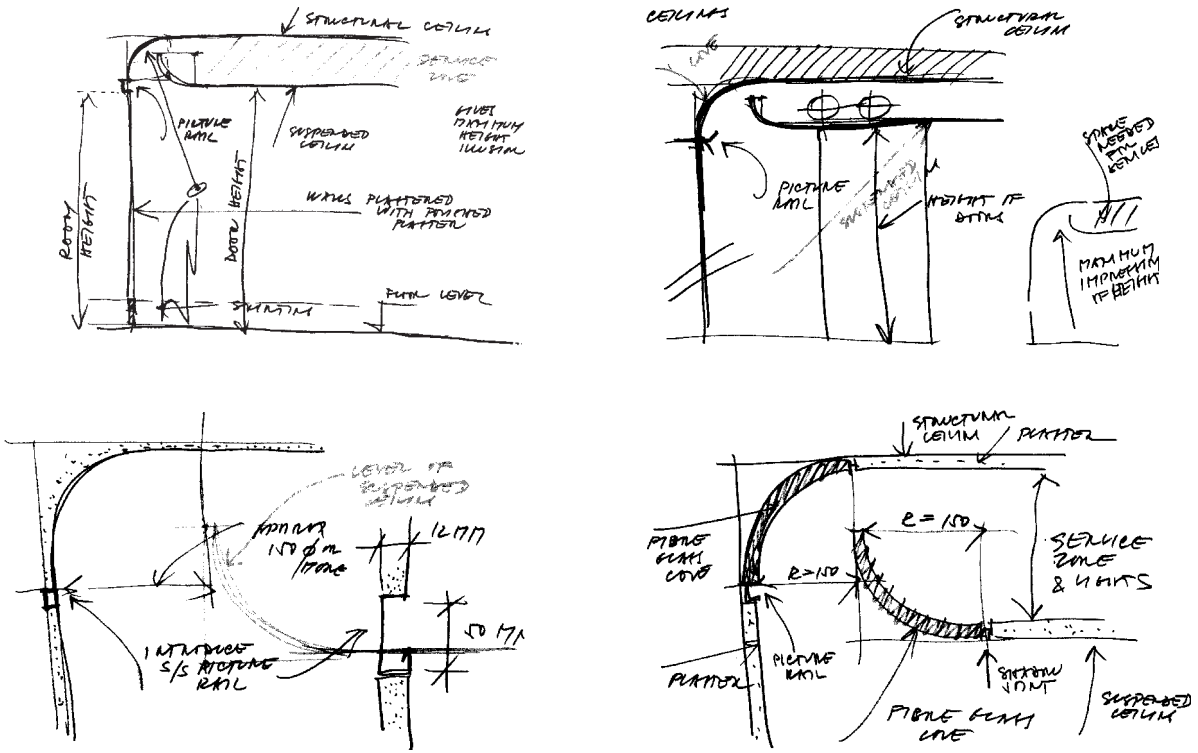 STRUCTURAL CEILING
SERVICE
ZONE
PICTURE
RAIL
SUSPENDED
CEILING
GIVES
MAXIMUM
HEIGHT
ILLUSION
ROOM
HEIGHT
DOOR HEIGHT
WALLS PLASTERED
WITH POLISHED
PLASTER
SKIRTING
FLOOR LEVEL
CEILINGS
COVE
STRUCTURAL
CEILING
PICTURE
RAIL
SUSPENDED
CEILING
HEIGHT OF
DOORS
SPACE
NEEDED
FOR
SERVICES
MAXIMUM
IMPRESSION
OF HEIGHT
LEVEL OF
SUSPENDED
CEILING
APPROX
150 Ø OR
MORE
12 MM
50 MM
INTRODUCE
S/S PICTURE
RAIL
STRUCTURAL
CEILING
PLASTER
FIBRE
GLASS
COVE
R=150
R=150
SERVICE
ZONE
& LIGHTS
PICTURE
RAIL
PLASTER
SHADOW
JOINT
FIBRE GLASS
COVE
SUSPENDED
CEILING